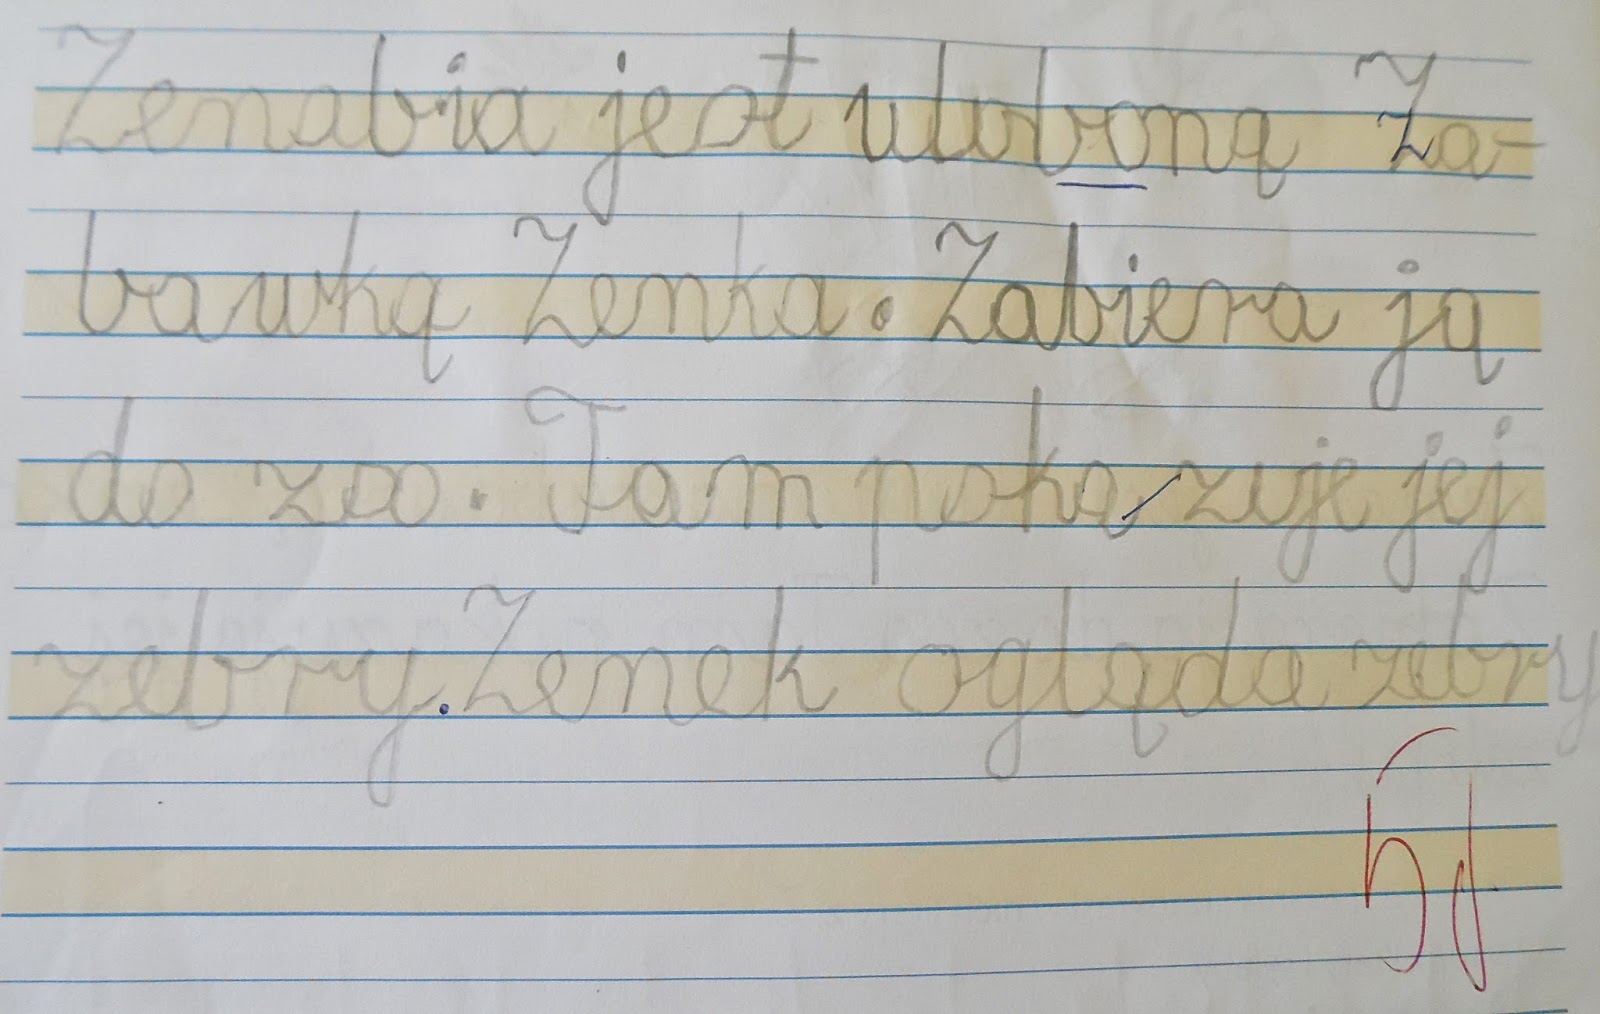 Zenabia jest uluboną Za-
bawką Zenka. Zabiera ją
do zoo. Tam poka zuje jej
zebry. Zenek ogląda zebry